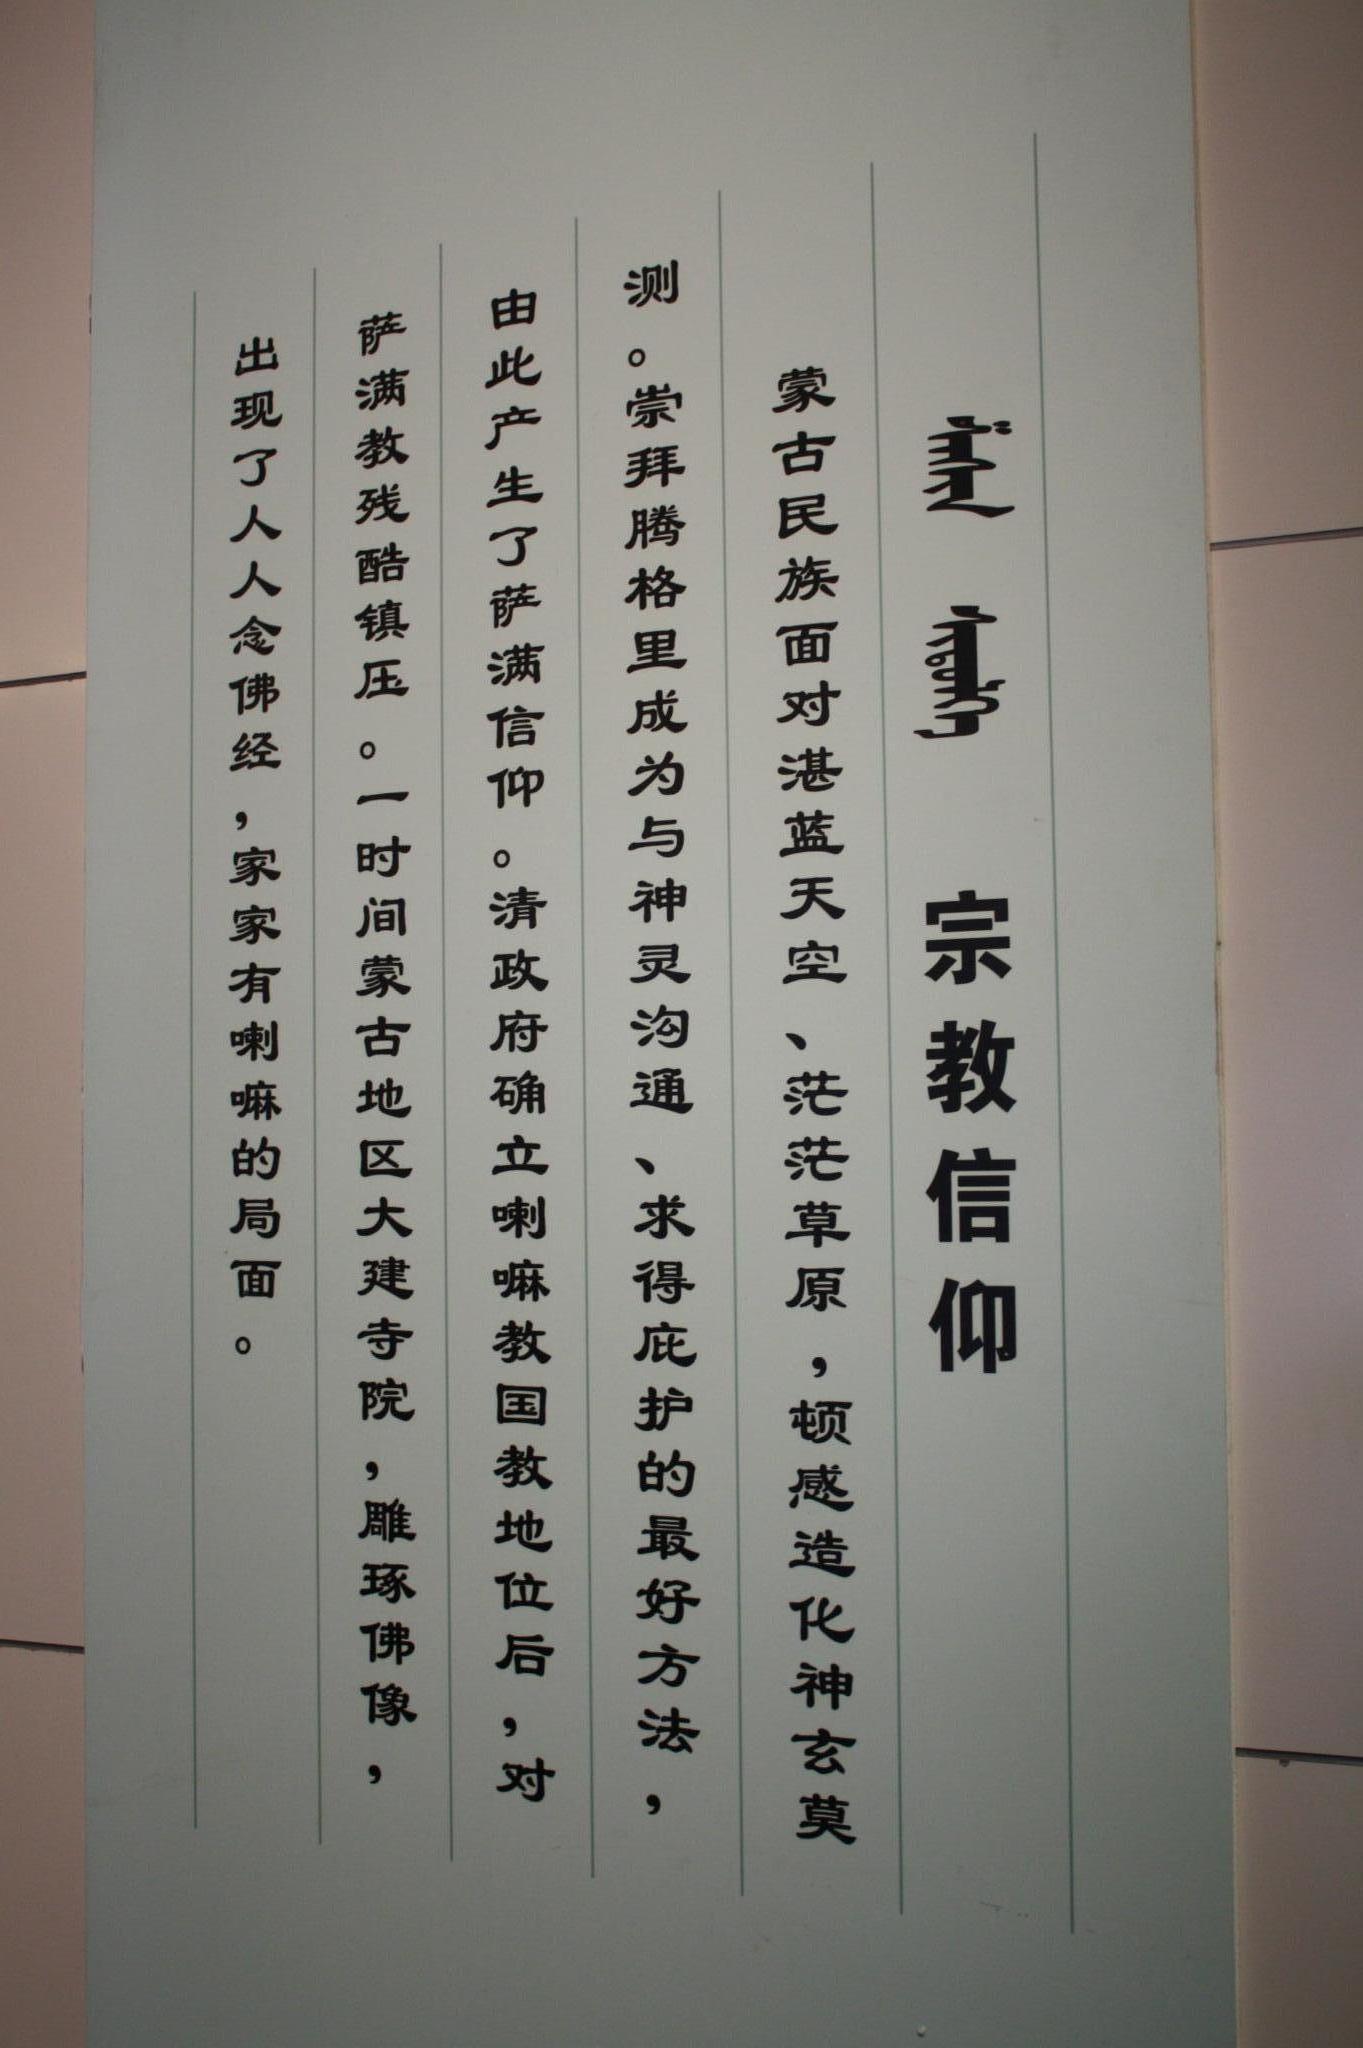 宗教信仰
蒙古民族面对湛蓝天空、茫茫草原，顿感造化神玄莫
测。崇拜腾格里成为与神灵沟通、求得庇护的最好方法，
由此产生了萨满信仰。清政府确立喇嘛教国教地位后，对
萨满教残酷镇压。一时间蒙古地区大建寺院，雕琢佛像，
出现了人人念佛经，家家有喇嘛的局面。